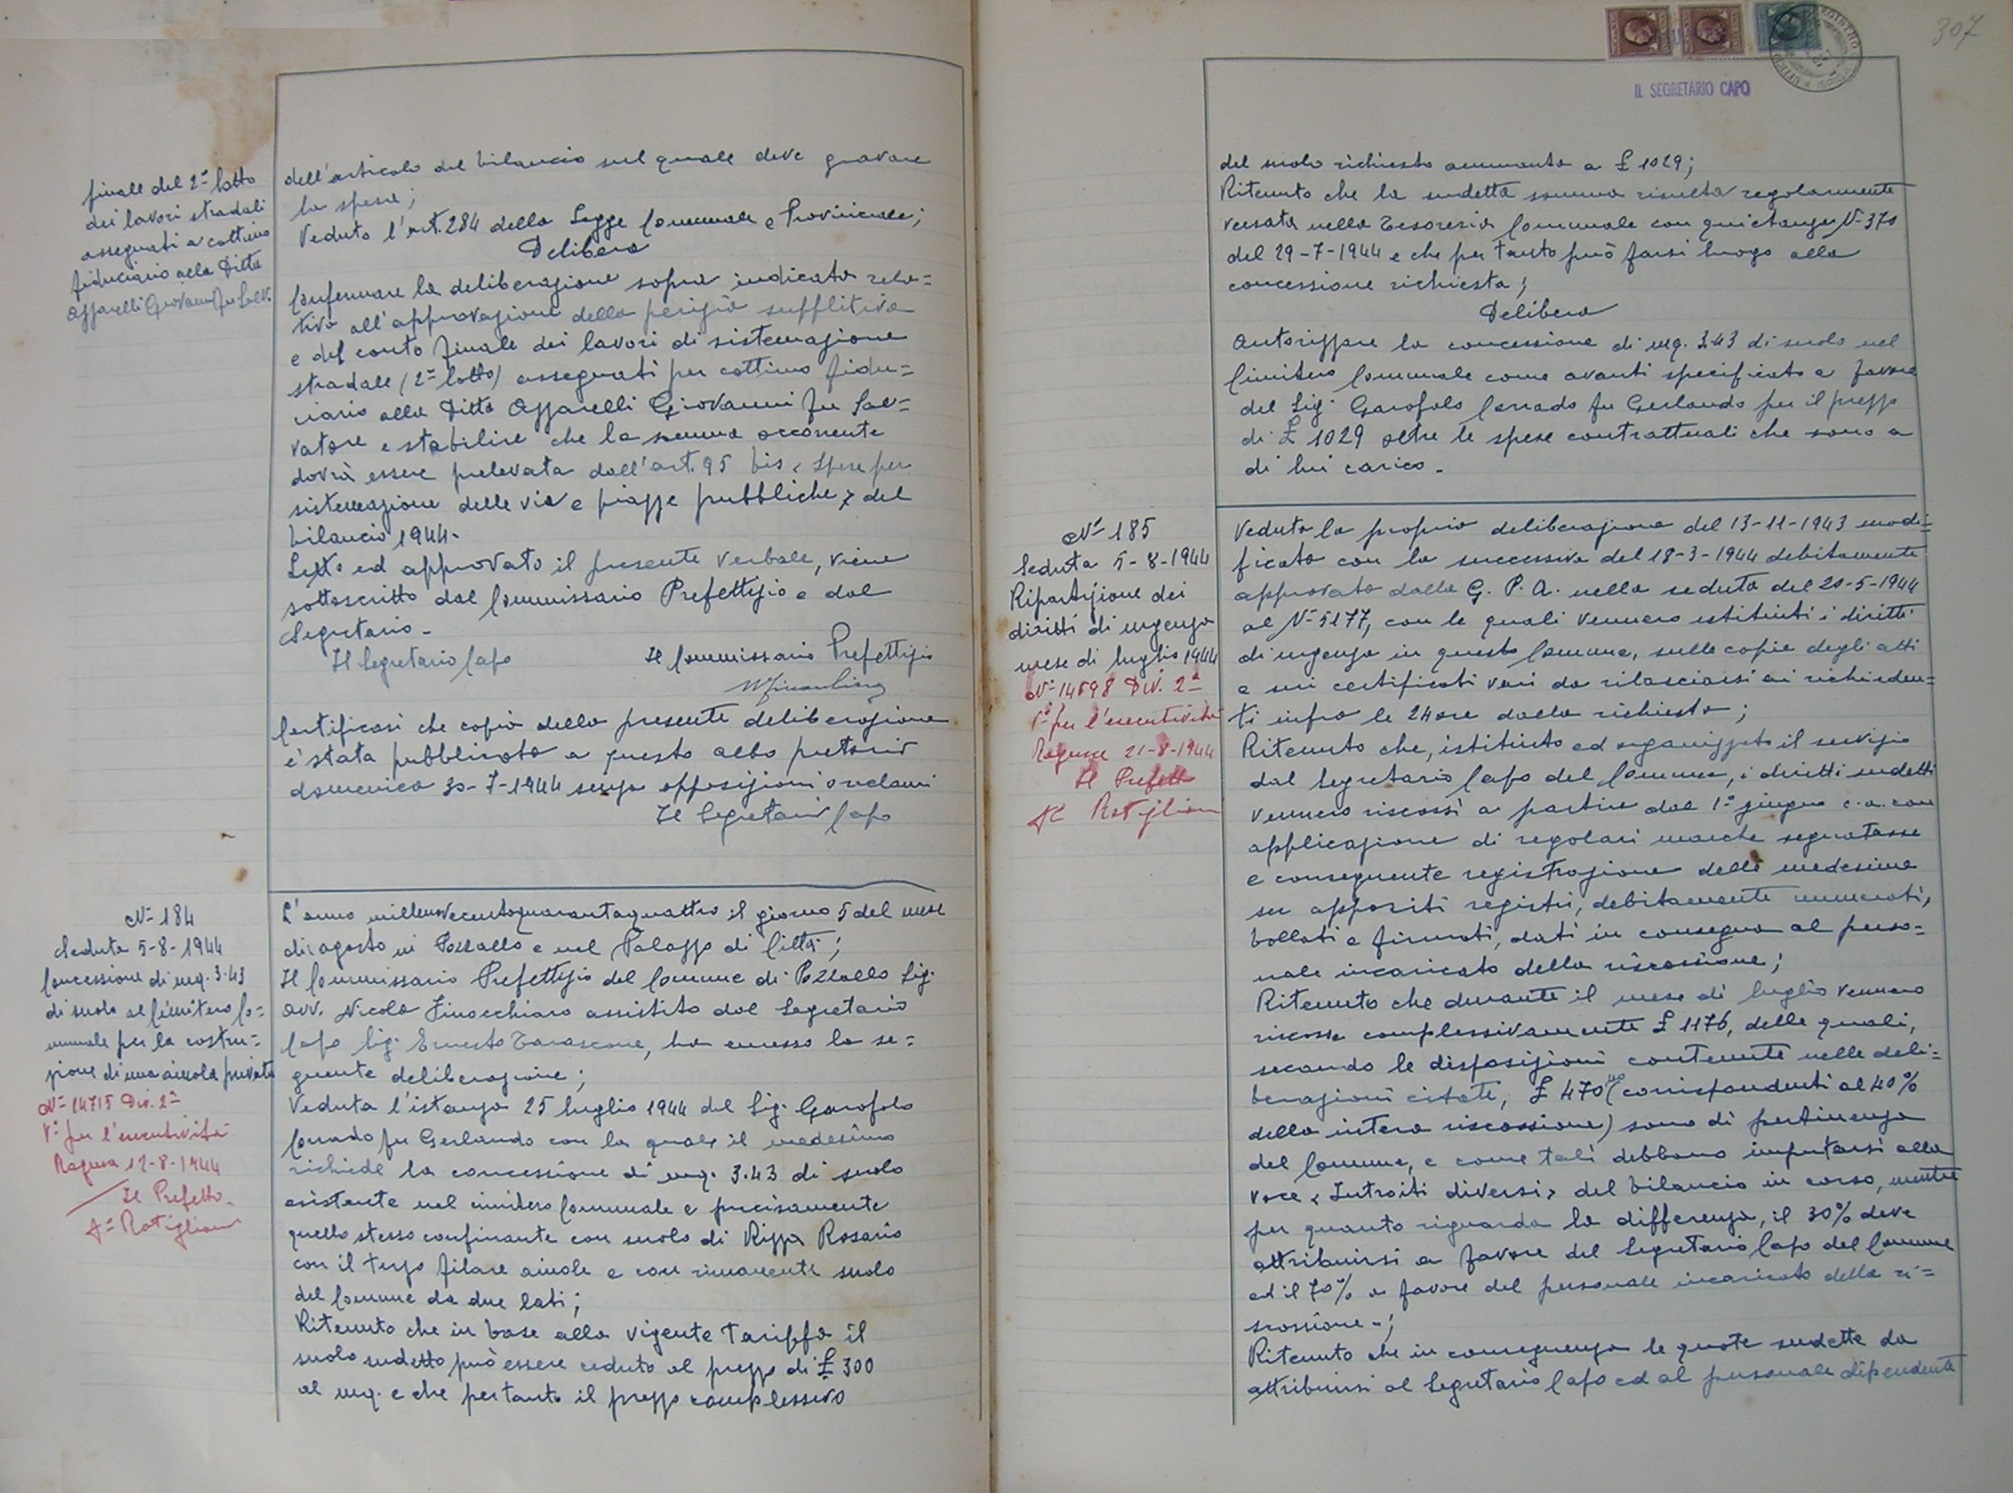 finale del 2º lotto
dei lavori stradali
assegnati a cottimo
fiduciario alla Ditta
Azzarelli Giovanni fu Salv.
dell'articolo del bilancio sul quale deve gravare
la spesa;
Veduto l'art. 284 della Legge Comunale e Provinciale;
Delibera
Confermare la deliberazione sopra indicata rela=
tiva all'approvazione della perizia supplitiva
e del conto finale dei lavori di sistemazione
stradale (2º lotto) assegnati per cottimo fidu=
ciario alla Ditta Azzarelli Giovanni fu Sal=
vatore e stabilire che la somma occorrente
dovrà essere prelevata dall'art. 95 bis "Spese per
sistemazione delle vie e piazze pubbliche" del
bilancio 1944.
Letto ed approvato il presente verbale, viene
sottoscritto dal Commissario Prefettizio e dal
Segretario.
Il Segretario Capo Il Commissario Prefettizio
Certificasi che copia della presente deliberazione
è stata pubblicata a questo albo pretorio
domenica 30-7-1944 senza opposizioni o reclami
Il Segretario Capo
Nº 184
Seduta 5-8-1944
Concessione di mq. 3.43
di suolo al Cimitero Co=
munale per la costru=
zione di una aiuola privata
Nº 14715 Div. 2ª
Vº per l'esecutività
Ragusa 12-8-1944
Il Prefetto
L'anno millenovecentoquarantaquattro il giorno 5 del mese
di agosto in Pozzallo e nel Palazzo di Città;
Il Commissario Prefettizio del Comune di Pozzallo Sig.
avv. Nicola Finocchiaro assistito dal Segretario
Capo Sig. Ernesto Tarascone, ha emesso la se=
guente deliberazione;
Veduta l'istanza 25 luglio 1944 del Sig. Garofolo
Corrado fu Gerlando con la quale il medesimo
richiede la concessione di mq. 3.43 di suolo
esistente nel cimitero Comunale e precisamente
quello stesso confinante con suolo di Rizza Rosario
con il terzo filare aiuole e con rimanente suolo
del Comune da due lati;
Ritenuto che in base alla vigente tariffa il
suolo sudetto può essere ceduto al prezzo di £ 300
al mq. e che pertanto il prezzo complessivo
307
IL SEGRETARIO CAPO
del suolo richiesto ammonta a £ 1029;
Ritenuto che la sudetta somma risulta regolarmente
versata nella Tesoreria Comunale con quietanza Nº 370
del 29-7-1944 e che per tanto può farsi luogo alla
concessione richiesta;
Delibera
Autorizzare la concessione di mq. 3.43 di suolo nel
Cimitero Comunale come avanti specificato a favore
del Sig. Garofolo Corrado fu Gerlando per il prezzo
di £ 1029 oltre le spese contrattuali che sono a
di lui carico.
Nº 185
Seduta 5-8-1944
Ripartizione dei
diritti di urgenza
mese di luglio 1944
Nº 14698 Div. 2ª
Vº per l'esecutività
Ragusa 21-8-1944
Il Prefetto
Veduta la propria deliberazione del 13-11-1943 modi=
ficata con la successiva del 18-3-1944 debitamente
approvata dalla G. P. A. nella seduta del 20-5-1944
al Nº 5177, con le quali vennero istituiti i diritti
di urgenza in questo Comune, sulle copie degli atti
e sui certificati vari da rilasciarsi ai richieden=
ti infra le 24 ore dalla richiesta;
Ritenuto che, istituito ed organizzato il servizio
dal Segretario Capo del Comune, i diritti sudetti
vennero riscossi a partire dal 1º giugno c.a. con
applicazione di regolari marche segnatasse
e conseguente registrazione delle medesime
su appositi registri, debitamente numerati,
bollati e firmati, dati in consegna al perso=
nale incaricato della riscossione;
Ritenuto che durante il mese di luglio vennero
riscosse complessivamente £ 1176, delle quali,
secondo le disposizioni contenute nelle deli=
berazioni citate, £ 470 (corrispondenti al 40%
della intera riscossione) sono di pertinenza
del Comune, e come tali debbono imputarsi alla
voce "Introiti diversi" del bilancio in corso, mentre
per quanto riguarda la differenza, il 30% deve
attribuirsi a favore del Segretario Capo del Comune
ed il 70% a favore del personale incaricato della ri=
scossione.;
Ritenuto che in conseguenza le quote sudette da
attribuirsi al Segretario Capo ed al personale dipendente